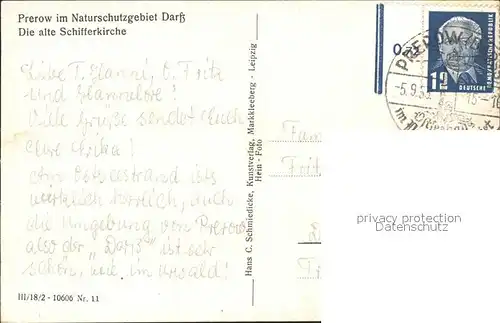 Prerow im Naturschutzgebiet Darß
Die alte Schifferkirche
Liebe T. Hanni, O. Fritz
und Hannelore!
Viele Grüße sendet Euch
Eure Erika!
Am Ostseestrand ists
wirklich herrlich, auch
die Umgebung von Prerow
also der „Darß" ist sehr
schön, wie im Urwald!
III/18/2 - 10606 Nr. 11
Hans C. Schmiedicke, Kunstverlag, Markkleeberg - Leipzig
Hein - Foto
Fam
Frit
PREROW
-5.9.5
15-
im
12
DEUTSCHE
privacy protection
watermark